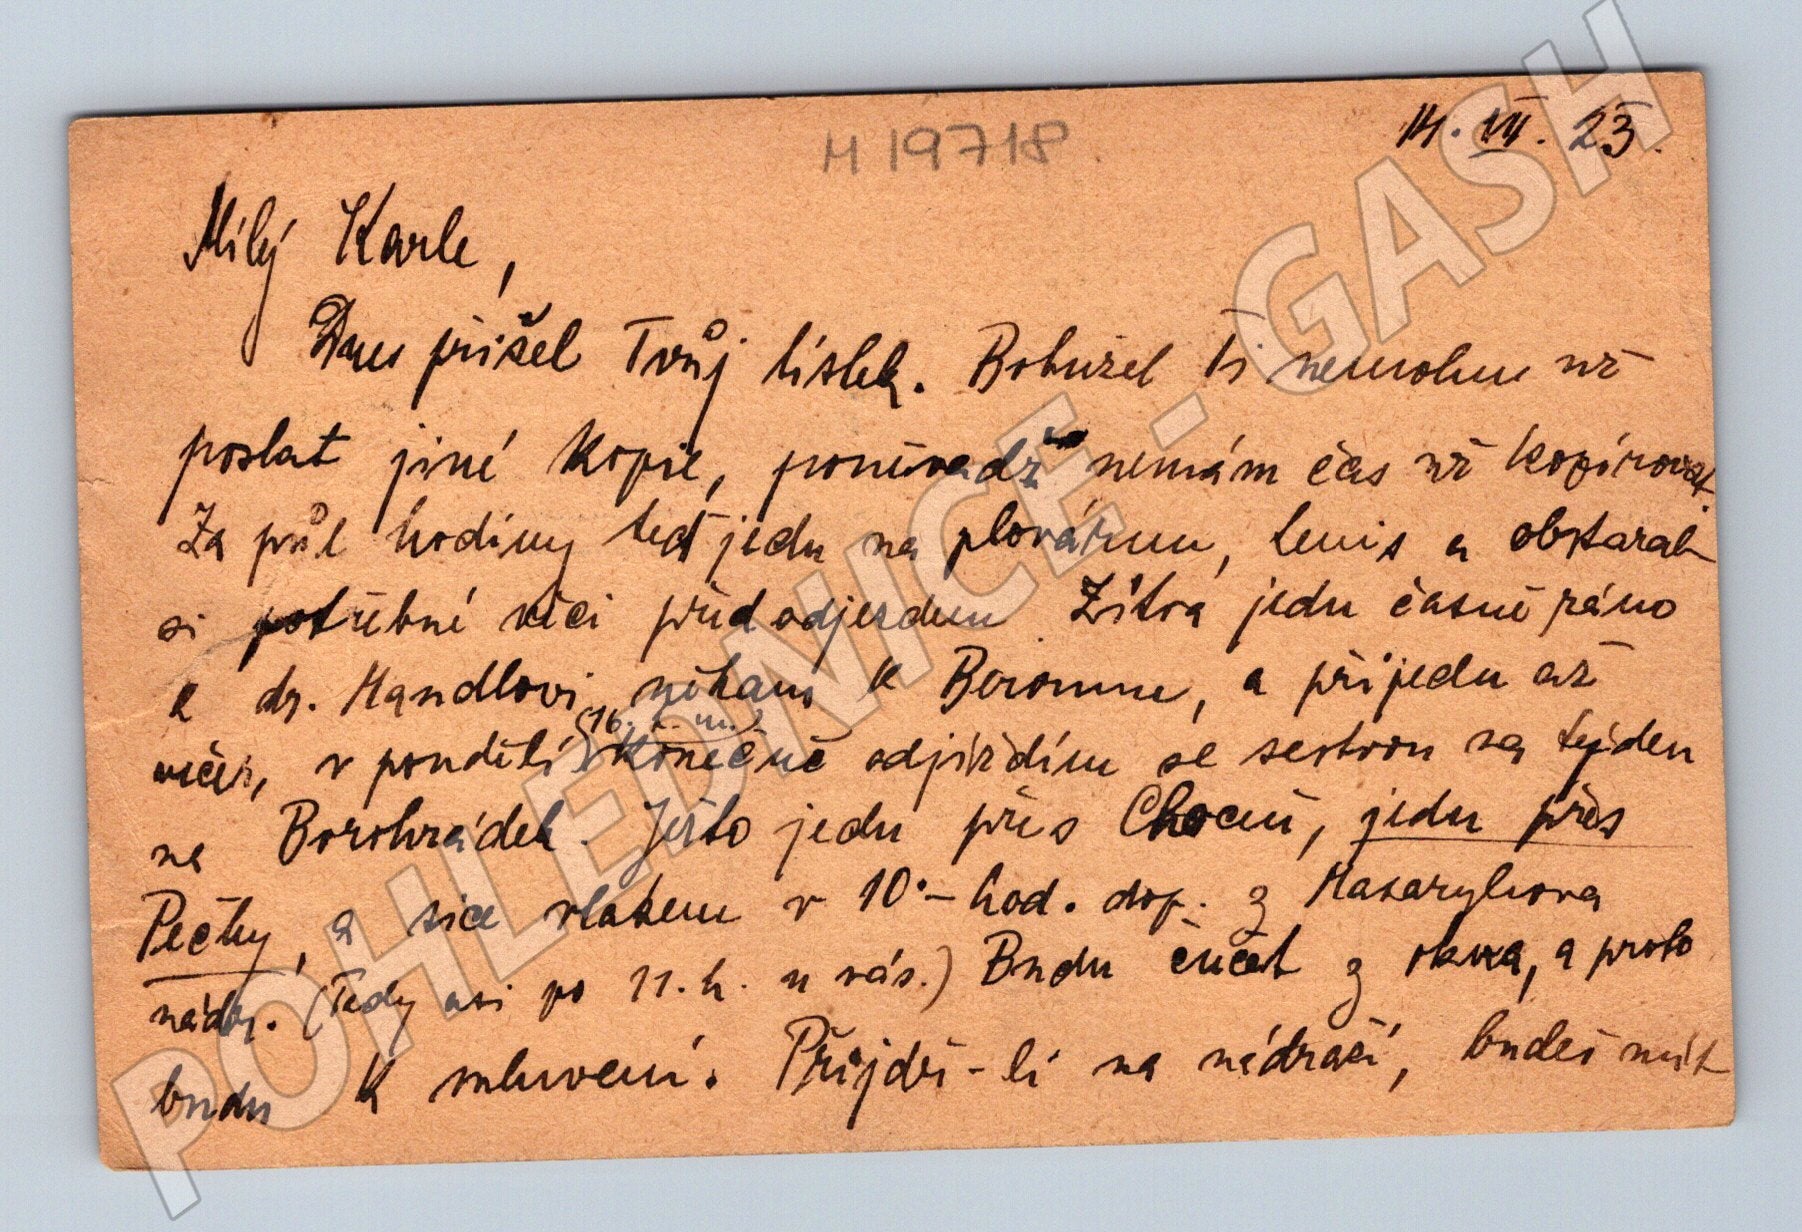 H 19718
14. VII. 23.
Milý Karle,
Dnes přišel Tvůj lístek. Bohužel Ti nemohu už
poslat jiné kopie, poněvadž nemám čas už kopírovat.
Za půl hodiny teď jedu na plovárnu, tenis a obstarat
si potřebné věci před odjezdem. Zítra jedu časně ráno
k dr. Mandlovi někam k Berounu, a přijedu až
večer, v pondělí (16. t. m.) konečně odjíždím se sestrou na týden
na Borohrádek. Ješto jedu přes Choceň, jedu přes
Pečky, a sice vlakem v 10·– hod. dop. z Masarykova
nádr. (Tedy asi po 11. h. u vás.) Budu čučet z okna, a proto
budu k mluvení. Přijdeš-li na nádraží, budeš mít
POHLEDNICE - GASH